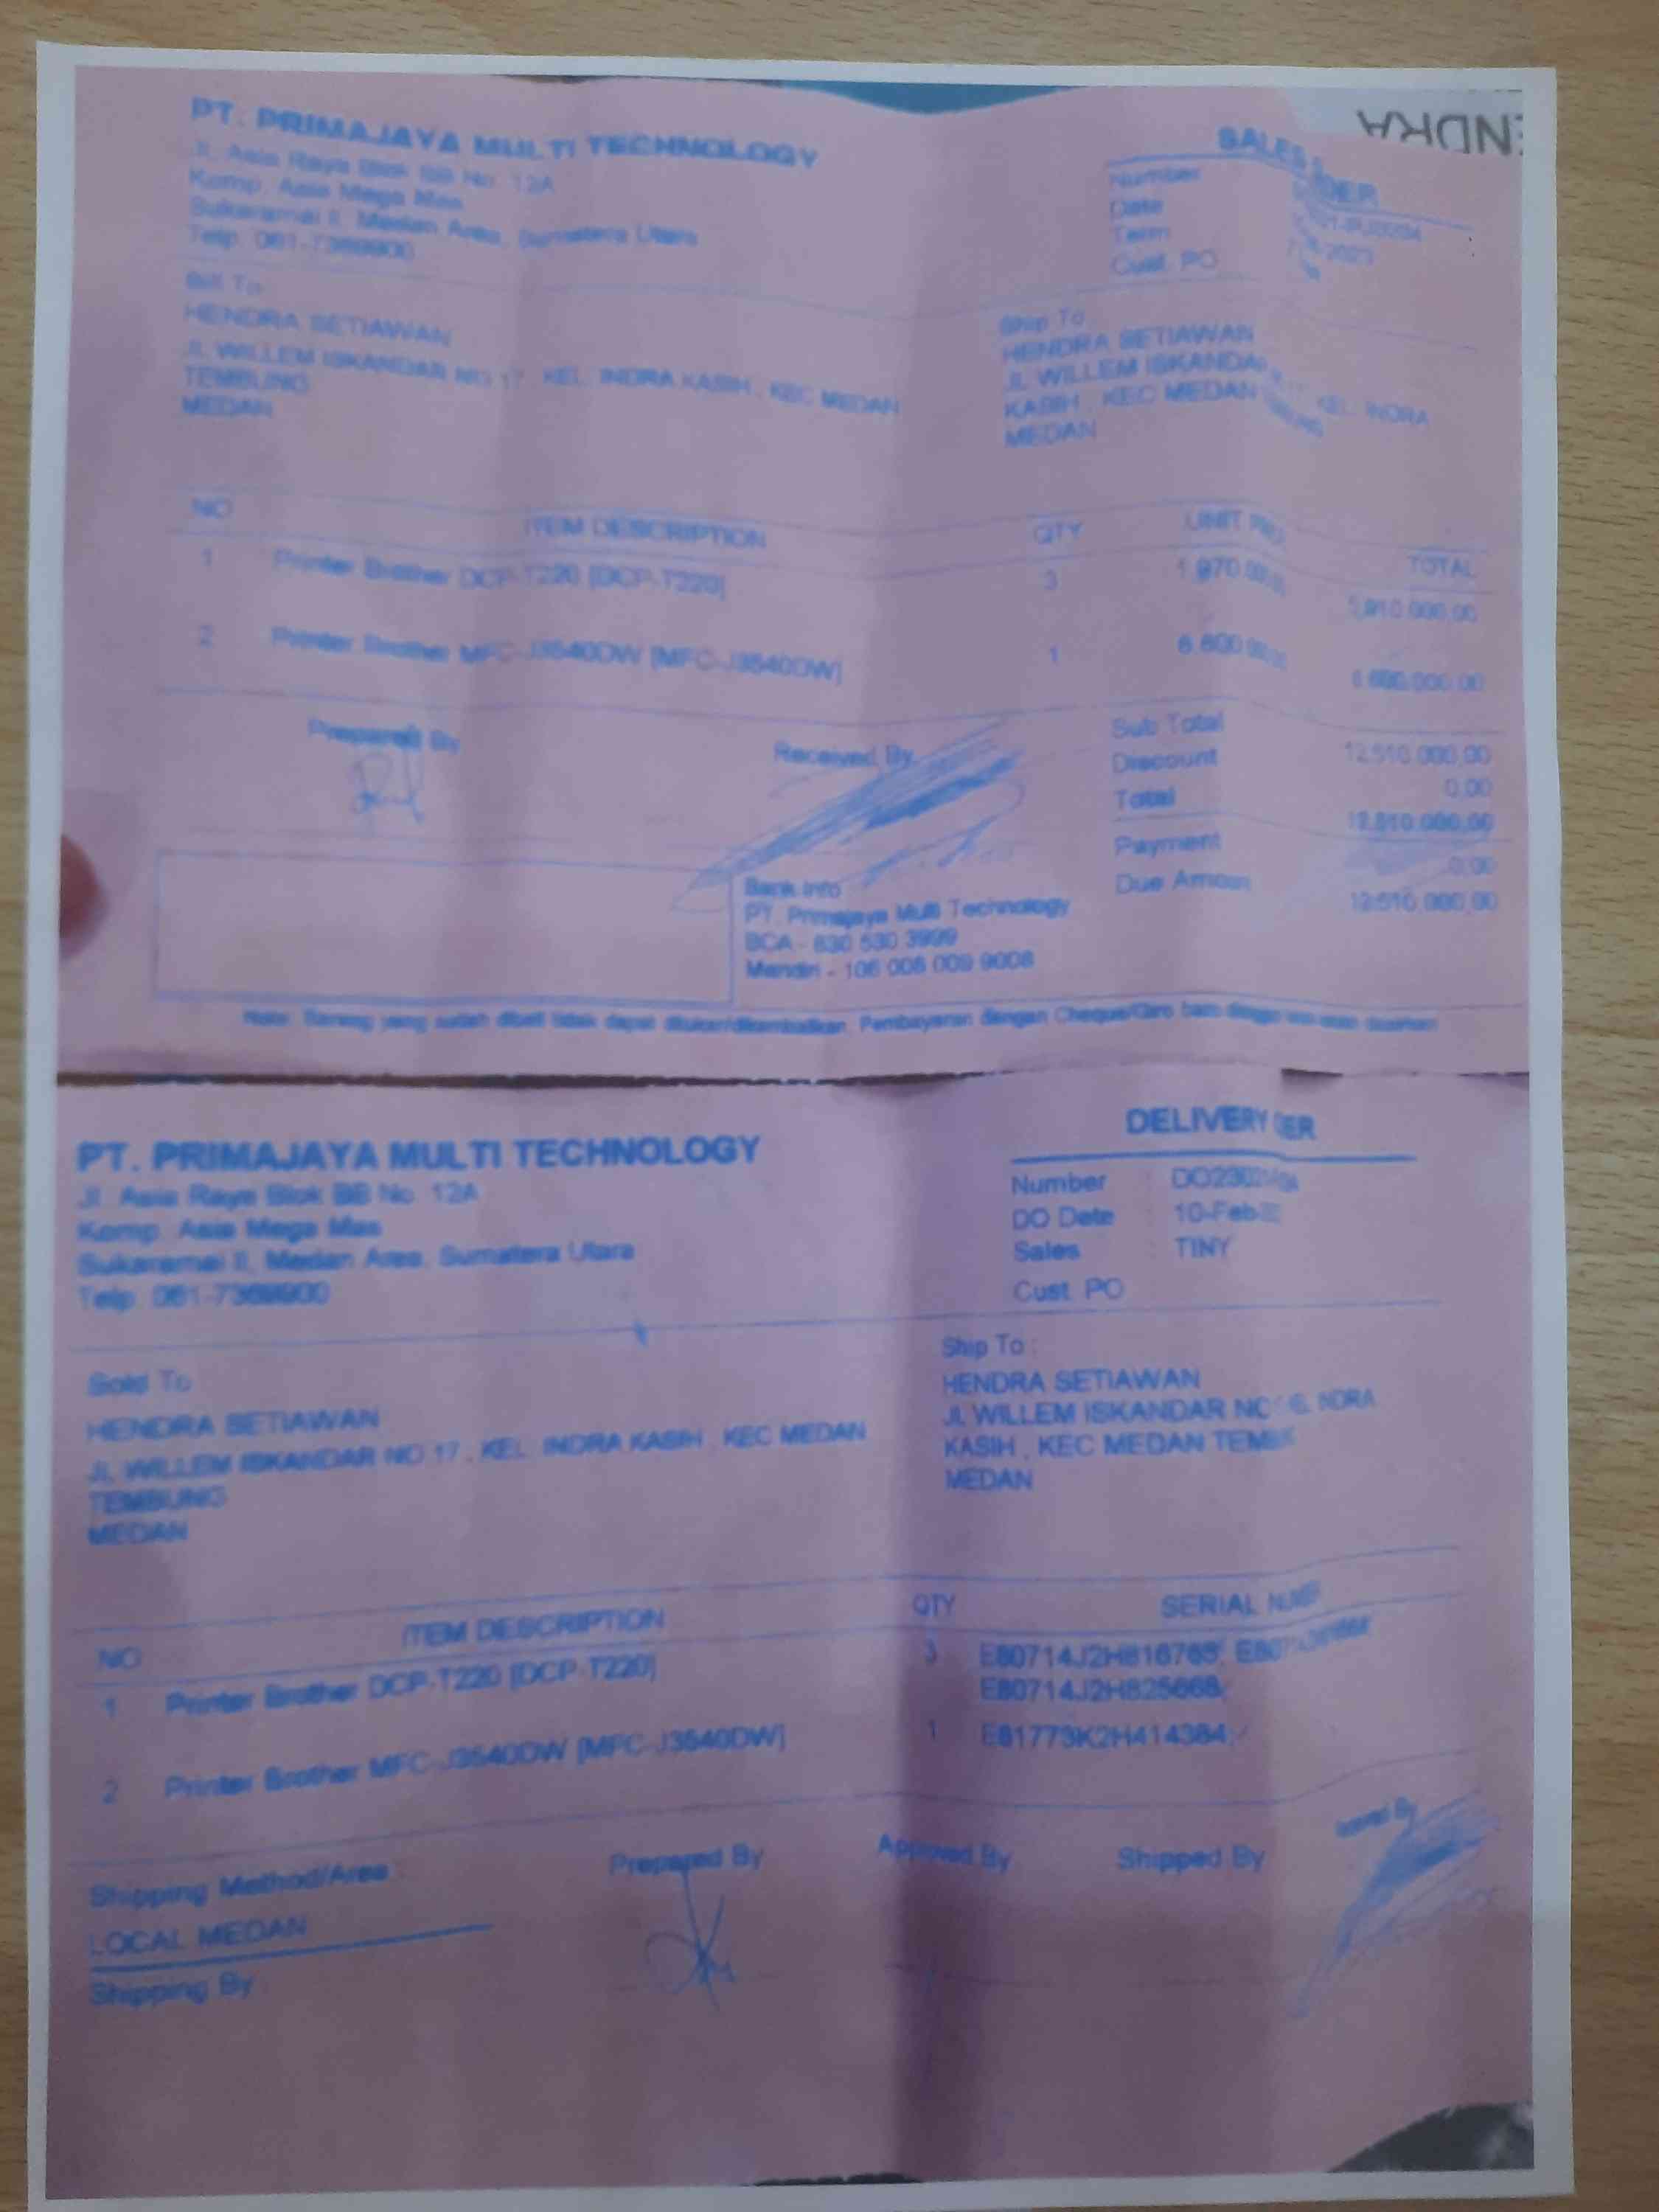 ENDRA
PT. PRIMAJAYA MULTI TECHNOLOGY
Jl. Asia Raya Blok BB No. 12A
Komp. Asia Mega Mas
Sukaramai II, Medan Area, Sumatera Utara
Telp. 061-7369900
SALES
Number
Date
Term
Cust. PO
Bill To
HENDRA SETIAWAN
JL WILLEM ISKANDAR NO 17 , KEL INDRA KASIH , KEC MEDAN
TEMBUNG
MEDAN
Ship To
HENDRA SETIAWAN
JL WILLEM ISKANDAR KEL INDRA
KASIH , KEC MEDAN
MEDAN
NO ITEM DESCRIPTION QTY UNIT TOTAL
1 Printer Brother DCP-T220 [DCP-T220] 3 1.970.000,00 5,910.000,00
2 Printer Brother MFC-J3540DW [MFC-J3540DW] 1 6.600.000,00 6.600.000,00
Prepared By
Received By
Sub Total 12.510.000,00
Discount 0,00
Total 12.510.000,00
Payment 0,00
Due Amount 12.510.000,00
Bank Info
PT. Primajaya Multi Technology
BCA - 830 530 3999
Mandiri - 106 008 009 9008
Note: Barang yang sudah dibeli tidak dapat ditukar/dikembalikan. Pembayaran dengan Cheque/Giro
PT. PRIMAJAYA MULTI TECHNOLOGY
Jl. Asia Raya Blok BB No. 12A
Komp. Asia Mega Mas
Sukaramai II, Medan Area, Sumatera Utara
Telp. 061-7369900
DELIVERY
Number :
DO Date : 10-Feb
Sales : TINY
Cust. PO
Sold To
HENDRA SETIAWAN
JL WILLEM ISKANDAR NO 17 , KEL INDRA KASIH , KEC MEDAN
TEMBUNG
MEDAN
Ship To :
HENDRA SETIAWAN
JL WILLEM ISKANDAR
KASIH , KEC MEDAN
MEDAN
NO ITEM DESCRIPTION QTY SERIAL
1 Printer Brother DCP-T220 [DCP-T220] 3 E80714J2H816765;
E80714J2H825668;
2 Printer Brother MFC-J3540DW [MFC-J3540DW] 1 E81773K2H414384;
Shipping Method/Area :
LOCAL MEDAN
Shipping By
Prepared By
Approved By
Shipped By